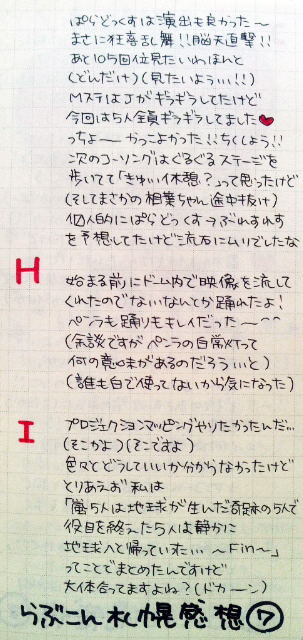 ぱらどっくすは演出も良かった〜
まさに狂喜乱舞!!脳天直撃!!
あと105回位見たいわほんと
(どんだけ)(見たいよう…!!)
MステはJがギラギラしてたけど
今回は5人全員ギラギラしてました❤
っちょ〜かっこよかった!!ちくしょう!!
次のユーソングはぐるぐるステージを
歩いてて「きゅ、休憩?」って思ったけど
(そしてまさかの相葉ちゃん途中抜け)
個人的にぱらどっくす→ぶれすれす
を予想してたけど流石にムリでしたな
H
始まる前にドーム内で映像を流して
くれたのでなんなんとか踊れたよ!
ペンラも踊りもキレイだった〜^^
(余談ですがペンラの白常灯って
何の意味があるのだろういと)
(誰も白で使ってないから気になった)
I
プロジェクションマッピングやりたかったんだ…
(そこかよ)(そこですよ)
色々とどうしていいか分からなかったけど
とりあえず私は
「嵐5人は地球が生んだ奇跡の5人で
役目を終えた5人は静かに
地球へと帰っていった… 〜Fin〜」
ってことでまとめたんですけど
大体合ってますよね?(ドカーン)
らぶこん札幌感想⑦